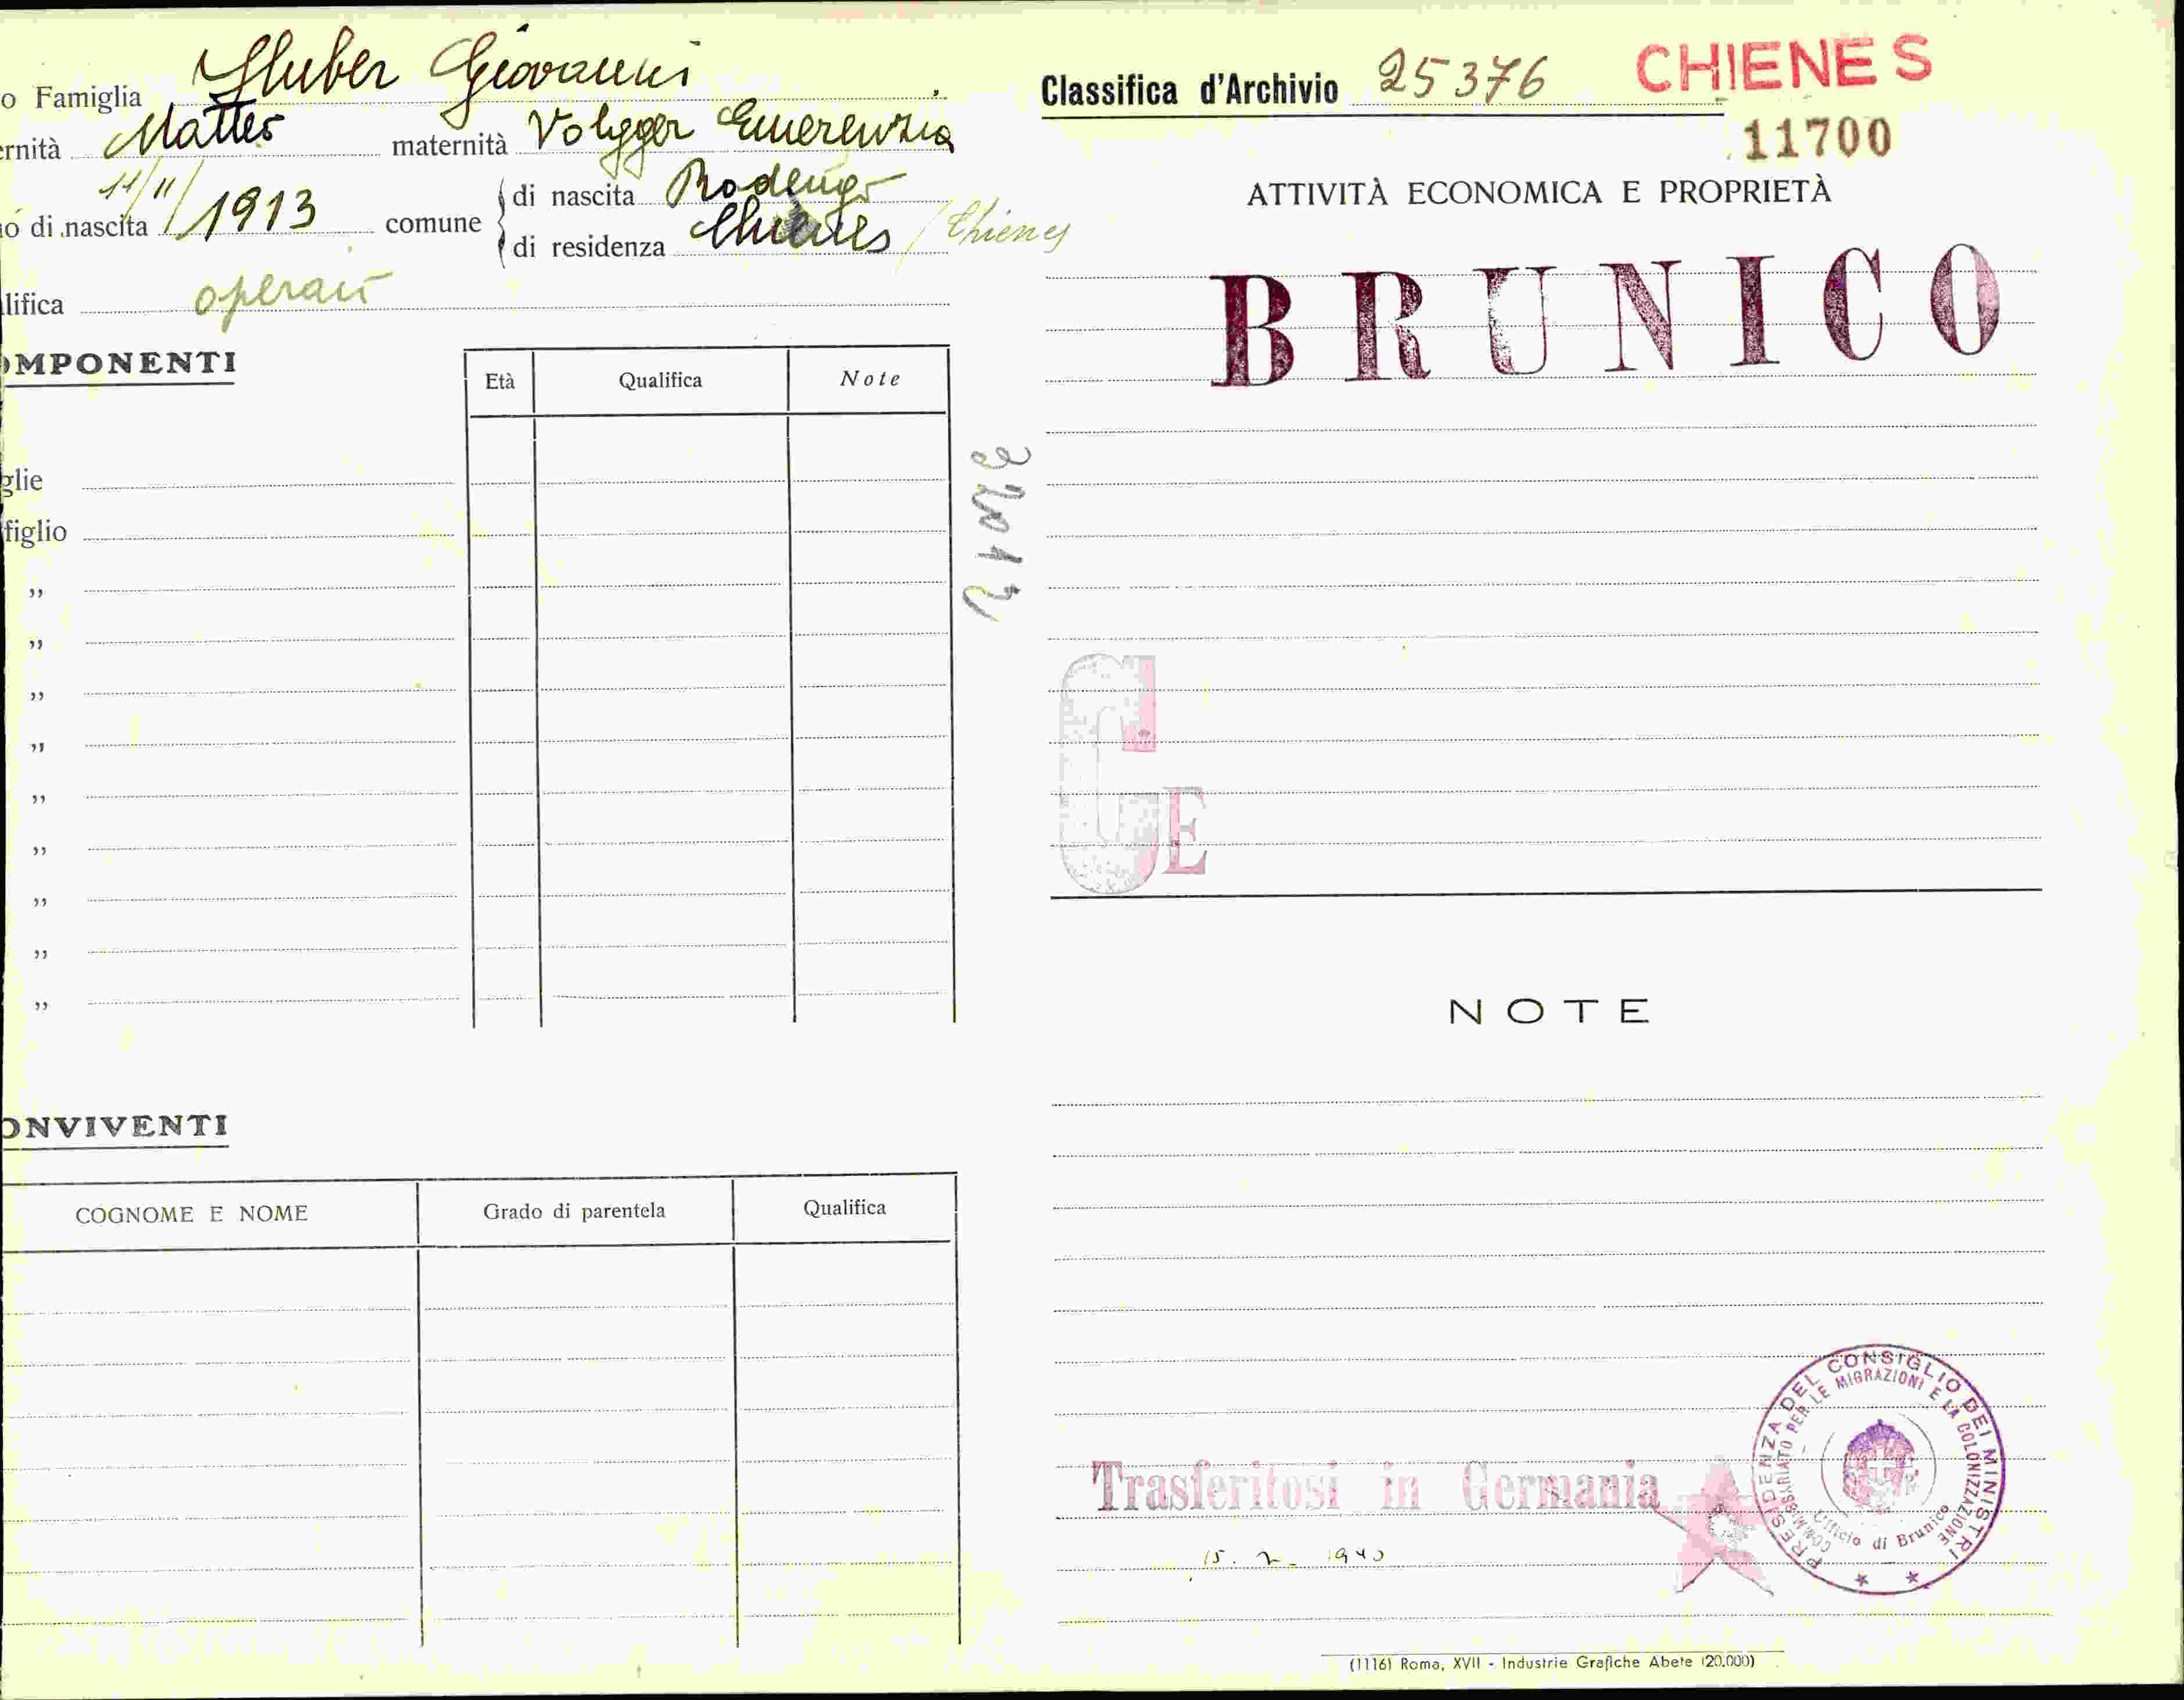 o Famiglia Huber Giovanni
ernità Matteo maternità Volgger Emerenzia
o di nascita 11/11/1913 comune di nascita Rodengo
di residenza Chienes / Chienes
lifica operaio
OMPONENTI
Età Qualifica Note
glie
figlio
„
„
„
„
„
„
„
„
„
ONVIVENTI
COGNOME E NOME Grado di parentela Qualifica
Classifica d'Archivio 25376 CHIENES
11700
ATTIVITÀ ECONOMICA E PROPRIETÀ
BRUNICO
G
E
NOTE
PRESIDENZA DEL CONSIGLIO DEI MINISTRI
COMMISSARIATO PER LE MIGRAZIONI E LA COLONIZZAZIONE
Ufficio di Brunico
Trasferitosi in Germania
15. 2. 1940
(1116) Roma, XVII - Industrie Grafiche Abete (20.000)